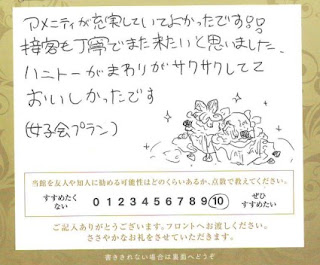 アメニティが充実していてよかったです!!
接客も丁寧でまた来たいと思いました。
ハニトーがまわりがサクサクしてて
おいしかったです
(女子会プラン)
当館を友人や知人に勧める可能性はどのくらいあるか、点数で教えてください。
すすめたくない 0 1 2 3 4 5 6 7 8 9 10 ぜひすすめたい
ご記入ありがとうございます。フロントへお渡しください。
ささやかなお礼をさせていただきます。
書ききれない場合は裏面へどうぞ